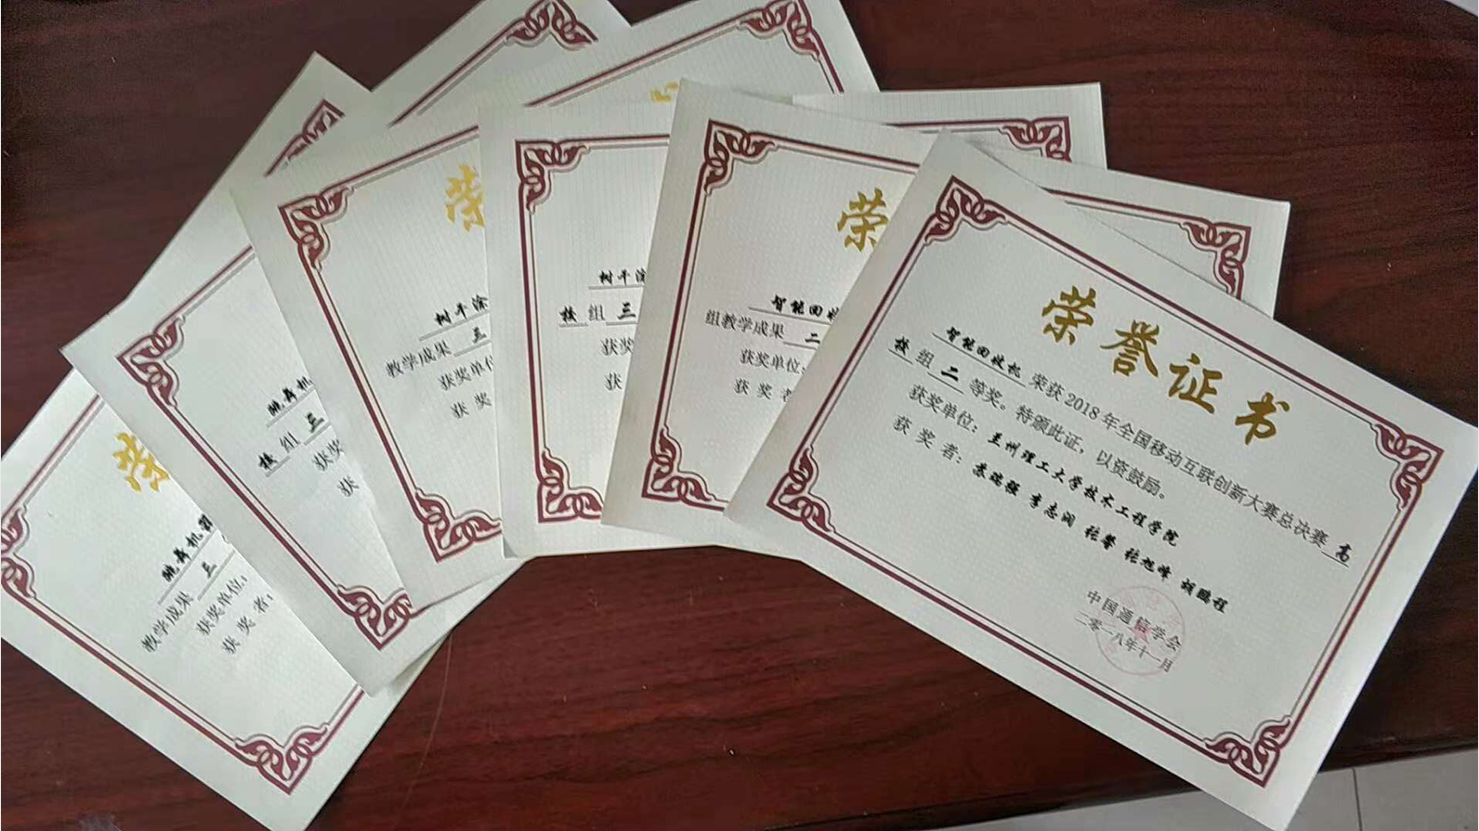 荣
教学成果 三
获奖单位:
获 奖 者:
校 组 三
获奖
获
荣
树干涂
教学成果 三
获奖单位
获 奖
树干涂
校 组 三
获奖
获
荣
智能回收
组教学成果 二
获奖单位:
获 奖 者
荣誉证书
智能回收机 荣获2018年全国移动互联创新大赛总决赛 高
校 组 二 等奖。特颁此证,以资鼓励。
获奖单位:兰州理工大学技术工程学院
获 奖 者:苏瑞强 李志润 张馨 张旭峰 胡鹏程
中国通信学会
二零一八年十一月